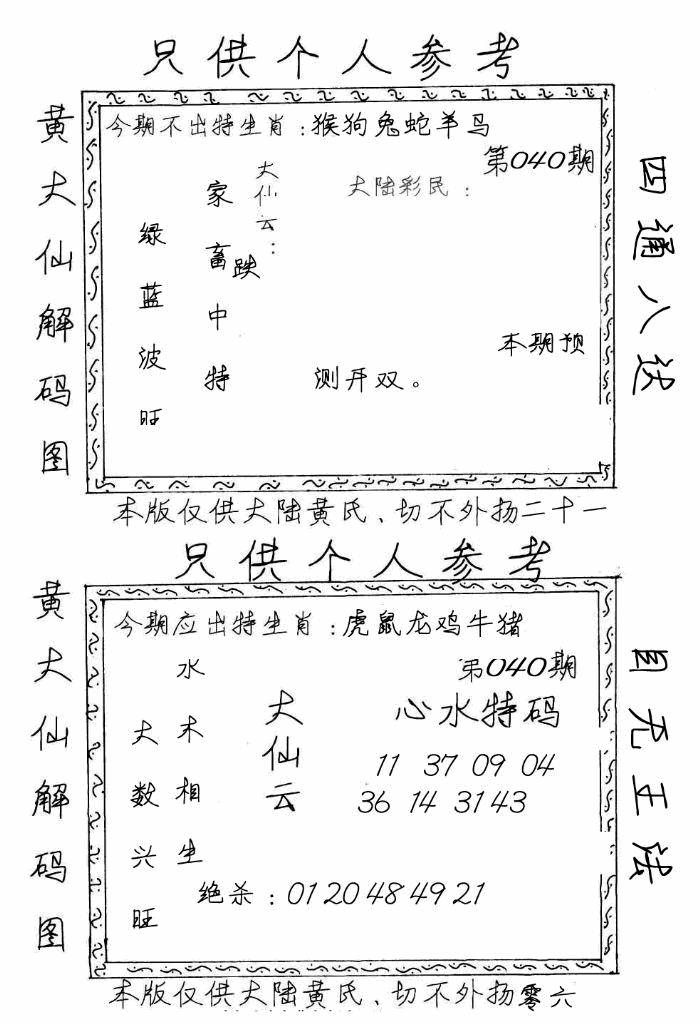 只供个人参考
黄大仙解码图
今期不出特生肖：猴狗兔蛇羊马
第040期
大陆彩民：
大仙云：
家畜中特
跌
绿蓝波旺
本期预
测开双。
四通八达
本版仅供大陆黄氏、切不外扬二十一
只供个人参考
黄大仙解码图
今期应出特生肖：虎鼠龙鸡牛猪
第040期
心水特码
水木相生
大数兴旺
大仙云
11 37 09 04
36 14 31 43
绝杀：01 20 48 49 21
目无王法
本版仅供大陆黄氏、切不外扬零六